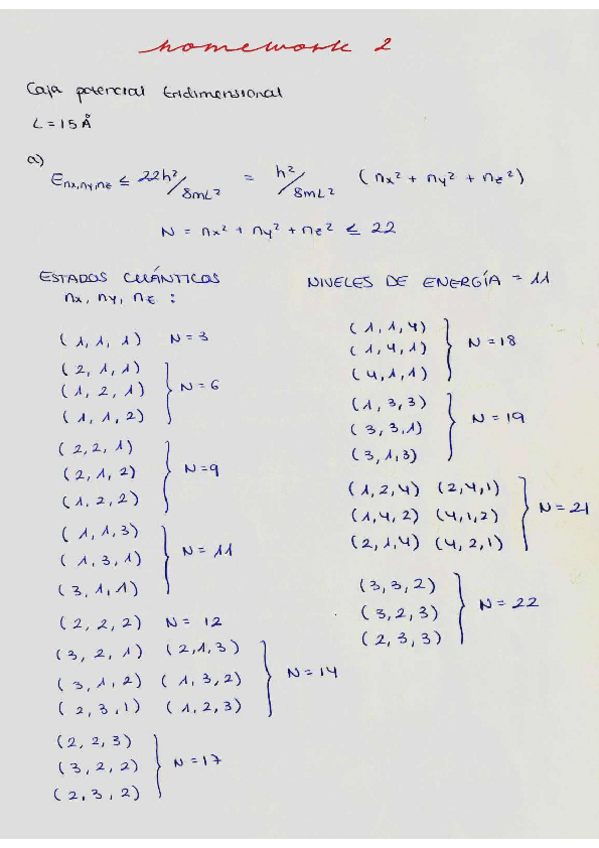 homework 2
Caja potencial tridimensional
L = 15 Å
a)
E nx,ny,nz ≤ 22h²/8mL² = h²/8mL² (nx² + ny² + nz²)
N = nx² + ny² + nz² ≤ 22
ESTADOS CUÁNTICOS
nx, ny, nz :
(1, 1, 1) N = 3
(2, 1, 1)
(1, 2, 1) N = 6
(1, 1, 2)
(2, 2, 1)
(2, 1, 2) N = 9
(1, 2, 2)
(1, 1, 3)
(1, 3, 1) N = 11
(3, 1, 1)
(2, 2, 2) N = 12
(3, 2, 1) (2, 1, 3)
(3, 1, 2) (1, 3, 2) N = 14
(2, 3, 1) (1, 2, 3)
(2, 2, 3)
(3, 2, 2) N = 17
(2, 3, 2)
NIVELES DE ENERGÍA = 11
(1, 1, 4)
(1, 4, 1) N = 18
(4, 1, 1)
(1, 3, 3)
(3, 3, 1) N = 19
(3, 1, 3)
(1, 2, 4) (2, 4, 1)
(1, 4, 2) (4, 1, 2) N = 21
(2, 1, 4) (4, 2, 1)
(3, 3, 2)
(3, 2, 3) N = 22
(2, 3, 3)